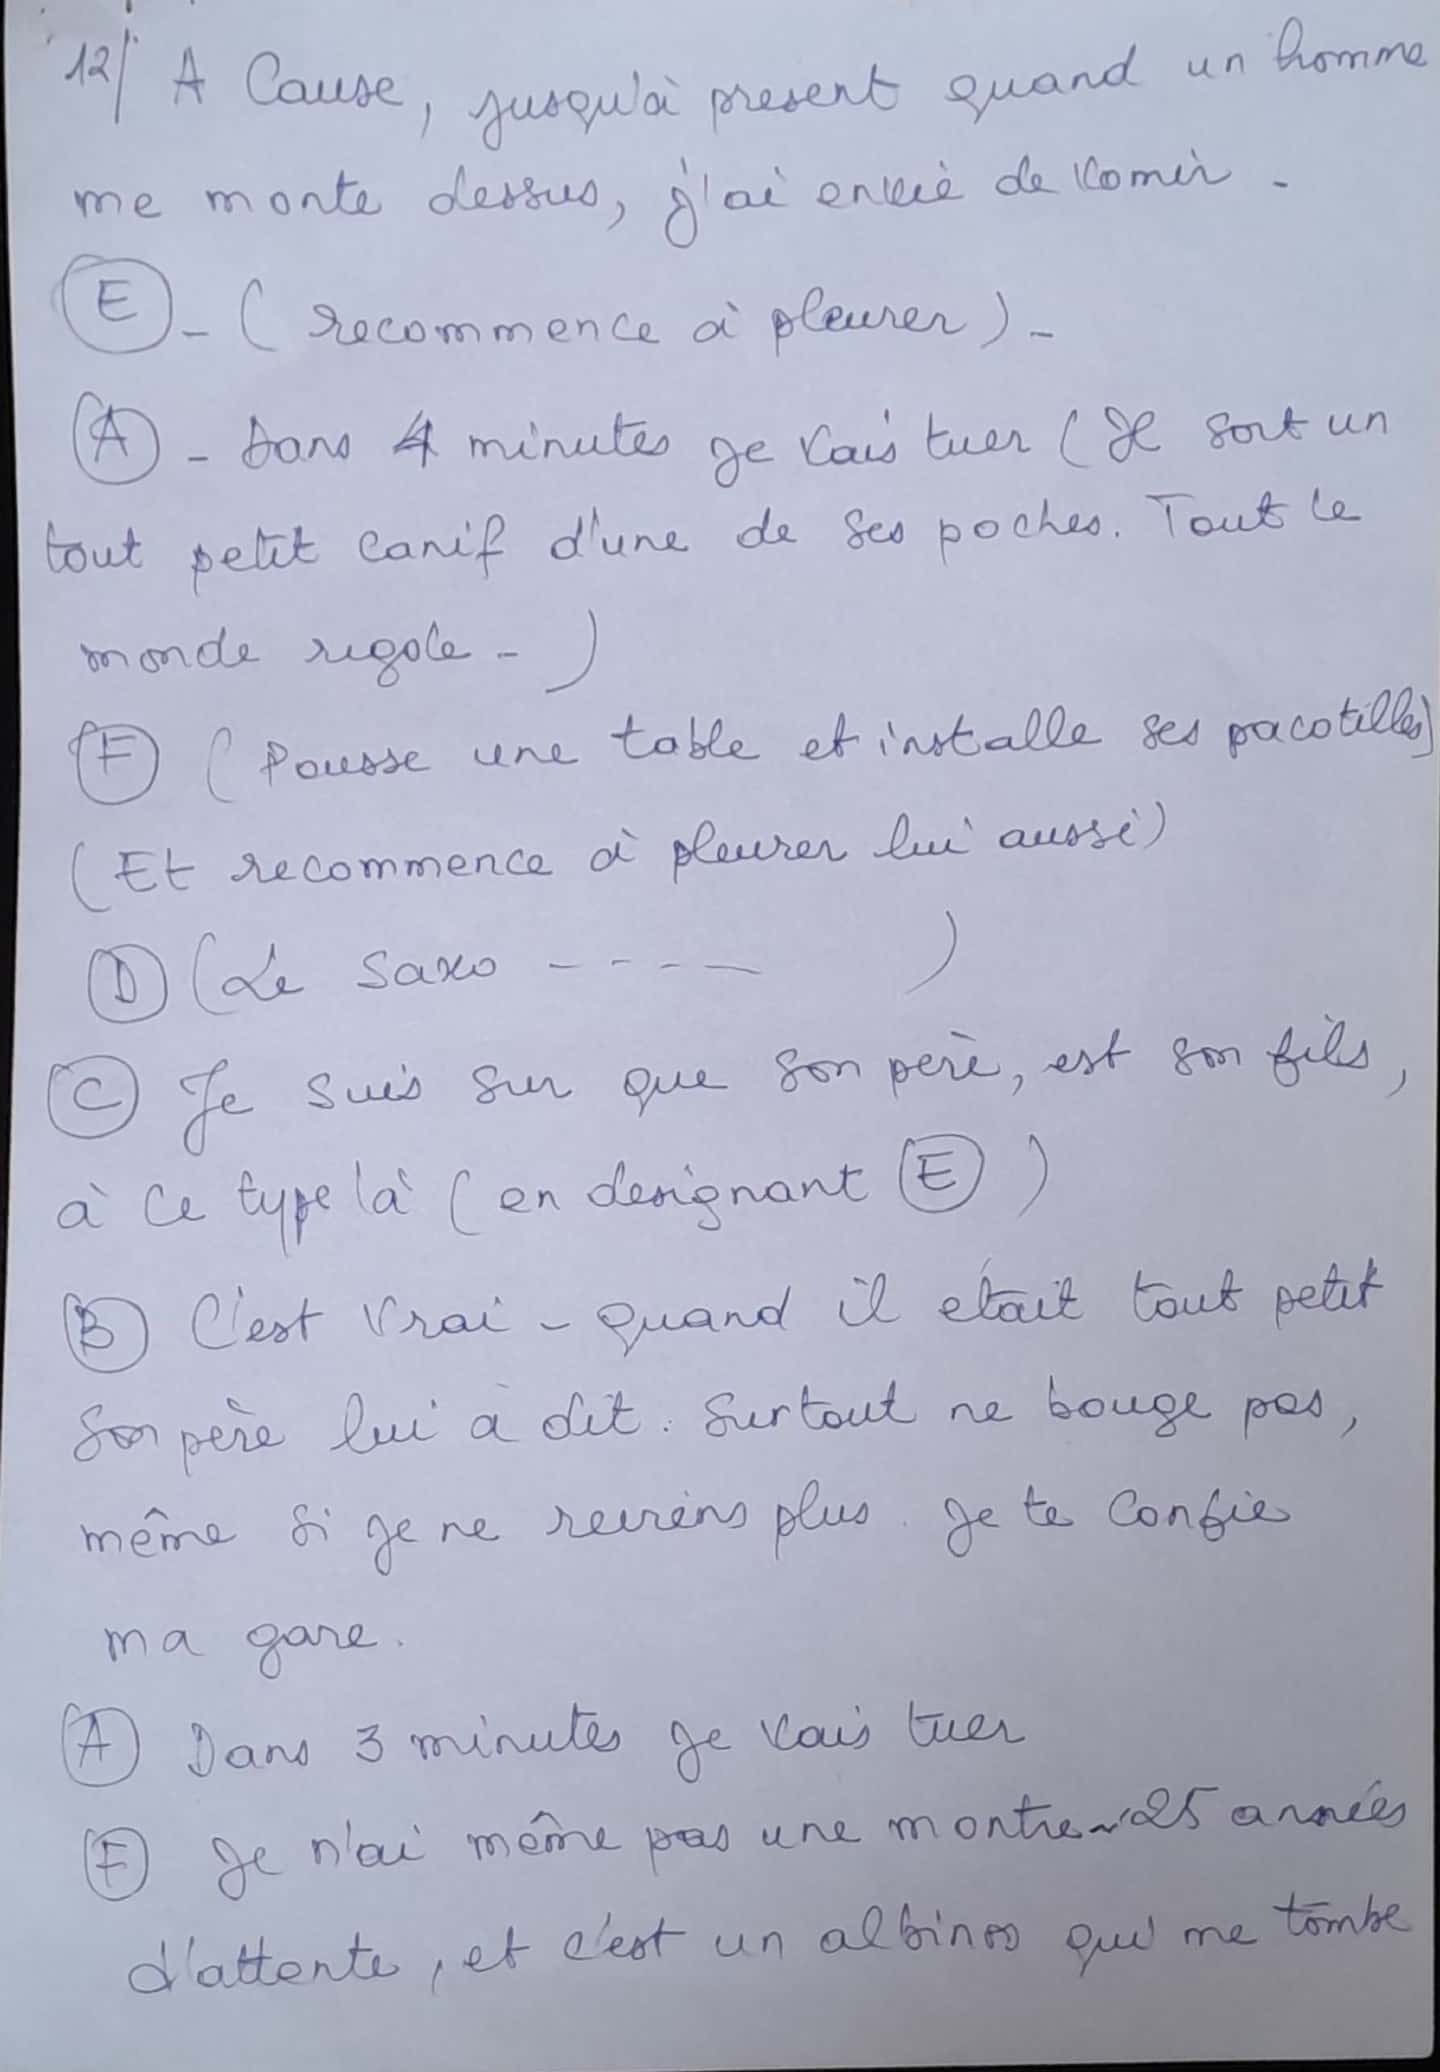 12/ A Cause, jusqu'à present quand un homme
me monte dessus, j'ai envie de vomir.
(E) - ( recommence à pleurer ) -
(A) - Dans 4 minutes je vais tuer ( Il sort un
tout petit canif d'une de ses poches. Tout le
monde rigole - )
(F) ( Pousse une table et installe ses pacotilles)
( Et recommence à pleurer lui aussi )
(D) ( Le saxo - - - - — )
(C) Je suis sur que son père, est son fils,
à ce type là ( en designant (E) )
(B) C'est vrai - quand il etait tout petit
son père lui a dit. surtout ne bouge pas,
même si je ne reviens plus. je te confie
ma gare.
(A) Dans 3 minutes je vais tuer
(F) Je n'ai même pas une montre ~ 25 années
d'attente, et c'est un albinos qui me tombe